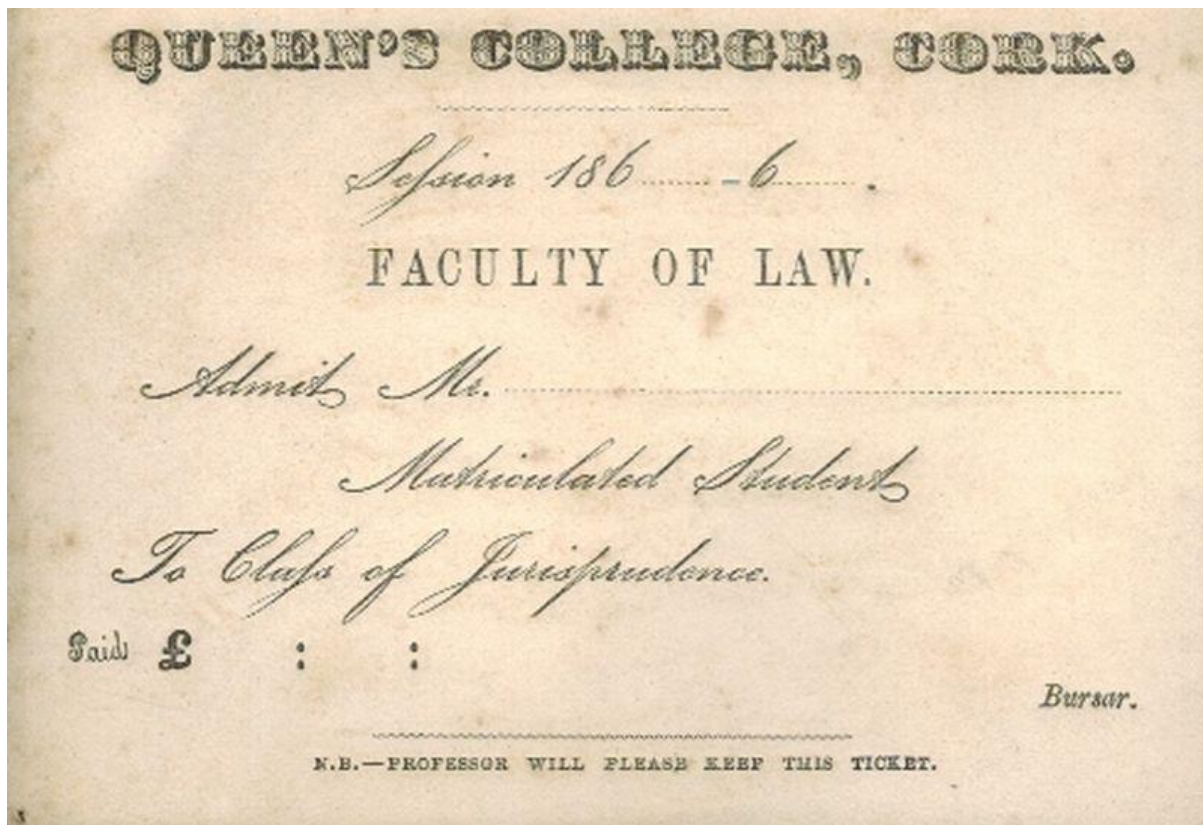 QUEEN'S COLLEGE, CORK.
Seſsion 186 ........ -6 ........ .
FACULTY OF LAW.
Admit Mr. ........................
Matriculated Student
To Claſs of Jurisprudence.
Paid £ : :
Bursar.
N.B.—PROFESSOR WILL PLEASE KEEP THIS TICKET.